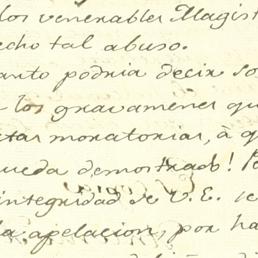 los venerables Magist
echo tal abuso.
anto podria decir so
los gravamenes qu
tas moratorias, á q
ueda demostrado! Po
integridad de V. E. se
la apelacion, por ha